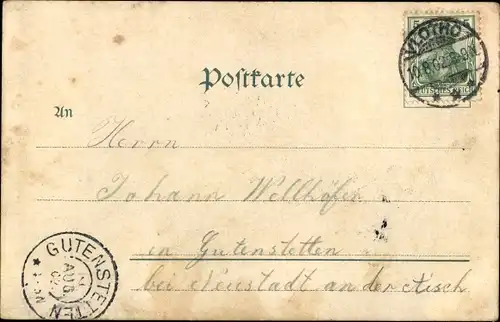 VLOTHO
5
DEUTSCHES REICH
Postkarte
An
Herrn
Johann Wellhöfer
in Gutenstetten
bei Neustadt an der Aisch
GUTENSTETTEN
AUG